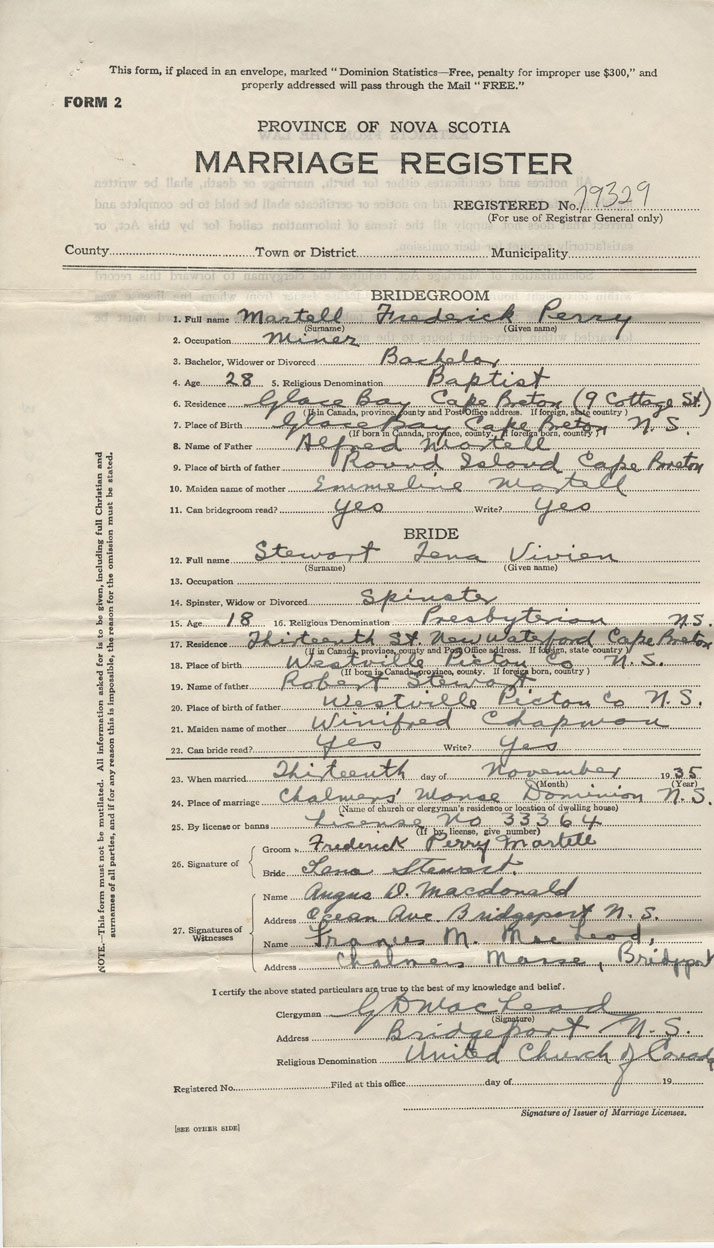 This form, if placed in an envelope, marked "Dominion Statistics—Free, penalty for improper use $300," and
properly addressed will pass through the Mail "FREE."
FORM 2
PROVINCE OF NOVA SCOTIA
MARRIAGE REGISTER
REGISTERED No. 79329
(For use of Registrar General only)
County Town or District Municipality
BRIDEGROOM
1. Full name Martell Frederick Perry
(Surname) (Given name)
2. Occupation Miner
3. Bachelor, Widower or Divorced Bachelor
4. Age 28 5. Religious Denomination Baptist
6. Residence Glace Bay Cape Breton (9 Cottage St.)
(If in Canada, province, county and Post Office address. If foreign, state country)
7. Place of Birth Glace Bay Cape Breton N.S.
(If born in Canada, province, county, If foreign born, country)
8. Name of Father Alfred Martell
9. Place of birth of father Round Island Cape Breton
10. Maiden name of mother Emmeline Martell
11. Can bridegroom read? Yes Write? Yes
BRIDE
12. Full name Stewart Lena Vivien
(Surname) (Given name)
13. Occupation
14. Spinster, Widow or Divorced Spinster
15. Age 18 16. Religious Denomination Presbyterian N.S.
17. Residence Thirteenth St. New Waterford Cape Breton
(If in Canada, province, county and Post Office address. If foreign, state country)
18. Place of birth Westville Pictou Co N.S.
(If born in Canada, province, county. If foreign born, country)
19. Name of father Robert Stewart
20. Place of birth of father Westville Pictou Co N.S.
21. Maiden name of mother Winifred Chapman
22. Can bride read? Yes Write? Yes
23. When married Thirteenth day of November 1935
(Month) (Year)
24. Place of marriage Chalmers' Manse Dominion N.S.
(Name of church or clergyman's residence or location of dwelling house)
25. By license or banns License No 33364
(If by license, give number)
26. Signature of
Groom Frederick Perry Martell
Bride Lena Stewart.
27. Signatures of Witnesses
Name Angus D. Macdonald
Address Ocean Ave. Bridgeport N.S.
Name Frances M. MacLeod,
Address Chalmers Manse, Bridgeport
I certify the above stated particulars are true to the best of my knowledge and belief.
Clergyman G D MacLeod
(Signature)
Address Bridgeport N.S.
Religious Denomination United Church of Canada
Registered No. Filed at this office day of 19
Signature of Issuer of Marriage Licenses.
[SEE OTHER SIDE]
NOTE.—This form must not be mutilated. All information asked for is to be given, including full Christian and
surnames of all parties, and if for any reason this is impossible, the reason for the omission must be stated.